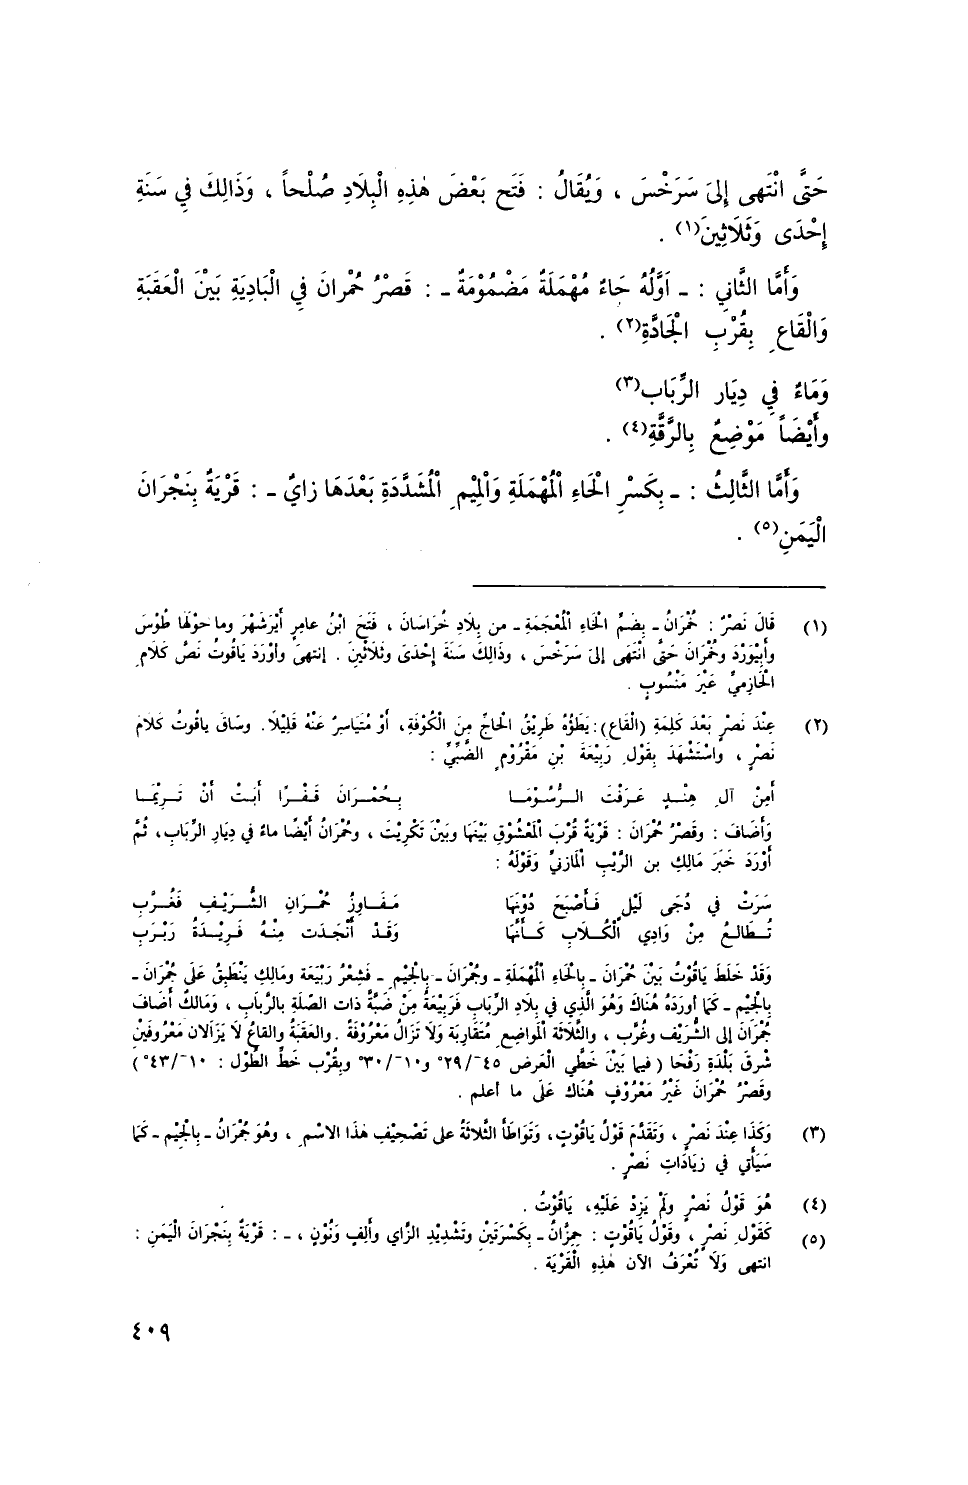 حَتَّى انْتَهى إِلىَ سَرَخْسَ ، وَيُقَالُ : فَتَح بَعْضَ هٰذِهِ الْبِلَادِ صُلْحاً ، وَذَالِكَ فِي سَنَةِ
إِحْدَى وَثَلَاثِينَ(١) .
وَأَمَّا الثَّاني : ـ اَوَّلُهُ حَاءٌ مُهْمَلَةٌ مَضْمُوْمَةٌ ـ : قَصْرُ حُمْرانَ فِي الْبَادِيَةِ بَيْنَ الْعَقَبَةِ
وَالْقَاعِ بِقُرْبِ الْجَادَّةِ(٢) .
وَمَاءٌ فِي دِيَارِ الرِّبَابِ(٣)
وأَيْضَاً مَوْضِعٌ بِالرَّقَّةِ(٤) .
وَأَمَّا الثَّالِثُ : ـ بِكَسْرِ الْحَاءِ الْمُهْمَلَةِ وَالْمِيْمِ الْمُشَدَّدَةِ بَعْدَهَا زايٌ ـ : قَرْيَةٌ بِنَجْرَانَ
الْيَمَنِ(٥) .
(١) قَالَ نَصْرٌ : خُمْرَانُ ـ بِضَمِّ الْخَاءِ الْمُعْجَمَةِ ـ من بِلَادِ خُرَاسَانَ ، فَتَحَ ابْنُ عامِرٍ أَبْرَشَهْرَ وما حوْلَها طُوْسَ
وأَبِيْوَرْدَ وخُمْرَانَ حَتَّى انْتَهَى إِلىَ سَرَخْسَ ، وذَالِكَ سَنَةَ إِحْدَى وثلاثِيْنَ . إنتهى وأوْرَدَ يَاقُوتُ نَصَّ كَلَامِ
الْحَازِمِيِّ غَيْرَ مَنْسُوبٍ .
(٢) عِنْدَ نَصْرٍ بَعْدَ كَلِمَةِ (الْقَاعِ) : يَطَؤُهُ طَرِيْقُ الْحَاجِّ مِنَ الْكُوْفَةِ، أَوْ مُتَيَاسِرٌ عَنْهُ قَلِيْلاً. وسَاقَ ياقُوتُ كَلَامَ
نَصْرٍ ، واسْتَشْهَدَ بِقَوْلِ رَبِيْعَةَ بْنِ مَقْرُوْمٍ الضَّبِّيِّ :
أَمِنْ آلِ هِنْدٍ عَرَفْتَ الرُّسُوْمَا بِحُمْرَانَ قَفْرًا أَبَتْ أَنْ تَرِيْمَا
وَأَضَافَ : وقَصْرُ حُمْرَانَ : قَرْيَةٌ قُرْبَ الْمَعْشُوْقِ بَيْنَهَا وبَيْنَ تَكْرِيْتَ ، وحُمْرَانُ أَيْضًا ماءٌ في دِيَارِ الرِّبَابِ، ثُمَّ
أَوْرَدَ خَبَرَ مَالِكِ بن الرَّيْبِ الْمازنِيِّ وَقَوْلَهُ :
سَرَتْ في دُجَى لَيْلٍ فَأَصْبَحَ دُوْنَهَا مَفَاوِزُ حُمْرَانِ الشُّرَيْفِ فَغُرَّبِ
تُطَالِعُ مِنْ وَادِي الْكُلَابِ كَأَنَّهَا وَقَدْ أَنْجَدَت مِنْهُ فَرِيْدَةُ رَبْرَبِ
وَقَدْ خَلَطَ يَاقُوْتُ بَيْنَ حُمْرَانَ ـ بِالْحَاءِ الْمُهْمَلَةِ ـ وجُمْرَانَ ـ بِالْجِيْمِ ـ فَشِعْرُ رَبِيْعَةَ ومَالِكٍ يَنْطَبِقُ عَلَى جُمْرَانَ ـ
بِالْجِيْمِ ـ كَمَا أورَدَهُ هُنَاكَ وَهُوَ الَّذِي في بِلَادِ الرِّبَابِ فَرَبِيْعَةُ مِنْ ضَبَّةَ ذات الصِّلَةِ بِالرِّبابِ ، ومَالكٌ أَضَافَ
جُمْرَانَ إلى الشُّرَيْفِ وغُرَّبِ ، والثَّلَاثَة الْمَوَاضِعِ مُتَقَارِبَة وَلَا تَزَالُ مَعْرُوْفَةً . والعَقَبَةُ والقاعُ لَا يَزَالان مَعْرُوفَيْنِ
شَرقَ بَلْدَةِ رَفْحَا ( فيما بَيْنَ خَطَّي الْعَرض ٤٥ َ/٢٩° و١٠ َ/٣٠° وبِقُرْب خَطِّ الطُّوْلِ : ١٠ َ/٤٣° )
وقَصْرُ حُمْرَانَ غَيْرُ مَعْرُوْفٍ هُنَاكَ عَلَى ما أعلم .
(٣) وَكَذَا عِنْدَ نَصْرٍ ، وتَقَدَّمَ قَوْلُ يَاقُوْتٍ، وَتَوَاطَأَ الثَّلَاثَةُ على تَصْحِيْفِ هٰذَا الاسْمِ ، وهُوَ جُمْرَانُ ـ بِالْجِيْمِ ـ كَمَا
سَيَأْتي في زِيَادَاتِ نَصْرٍ .
(٤) هُوَ قَوْلُ نَصْرٍ ولَمْ يَزِدْ عَلَيْهِ، يَاقُوْتُ .
(٥) كَقَوْلِ نَصْرٍ ، وقَوْلُ يَاقُوْتٍ : حِمِزَّانُ ـ بِكَسْرَتَيْنِ وتَشْدِيْدِ الزَّاي وأَلِفٍ ونُوْنٍ ، ـ : قَرْيَةٌ بِنَجْرَانَ الْيَمَنِ :
انتهى وَلَا تُعْرَفُ الآن هٰذِهِ الْقَرْيَة .
٤٠٩